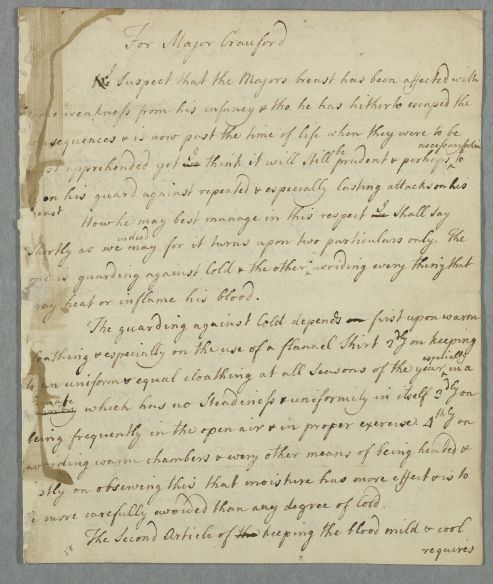 For Major Crauford
I suspect that the Majors breast has been affected with
weakness from his infancy & tho he has hitherto escaped the
consequences & is now past the time of life when they were to be
necessary for him
most apprehended yet I think it will still be prudent & perhaps to
be on his guard against repeated & especially lasting attacks on his
breast
How he may best manage in this respect I shall say
shortly as indeed we may for it turns upon two particulars only. The
one is guarding against Cold & the other, avoiding every thing that
may heat or inflame his blood.
The guarding against Cold depends first upon warm
cloathing & especially on the use of a flannel Shirt 2dly on keeping
to an uniform & equal cloathing at all seasons of the year especially in a
climate which has no Steadiness & uniformity in itself 3dly on
being frequently in the open air & in proper exercise. 4thly on
avoiding warm chambers & every other means of being heated &
lastly on observing this that moisture has more effect & is to
be more carefully avoided than any degree of Cold.
The Second Article of keeping the blood mild & cool
requires
58